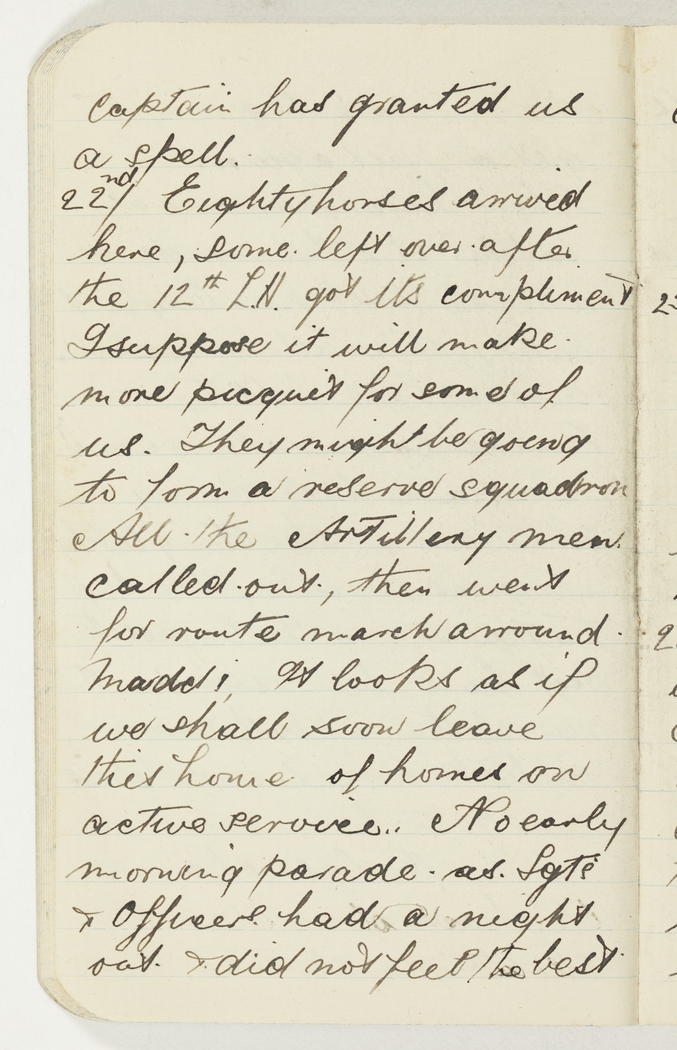 captain has granted us
a spell.
22nd/ Eighty horses arrived
here, some left over after
the 12th L.H. got its compliment
I suppose it will make
more picquit for some of
us. They might be going
to form a reserve squadron
All the Artillery men
called out, then went
for route march arround
Maddi, It looks as if
we shall soon leave
this home of homes on
active service.. No early
morning parade as Sgts
& Officers had a night
out & did not feel the best